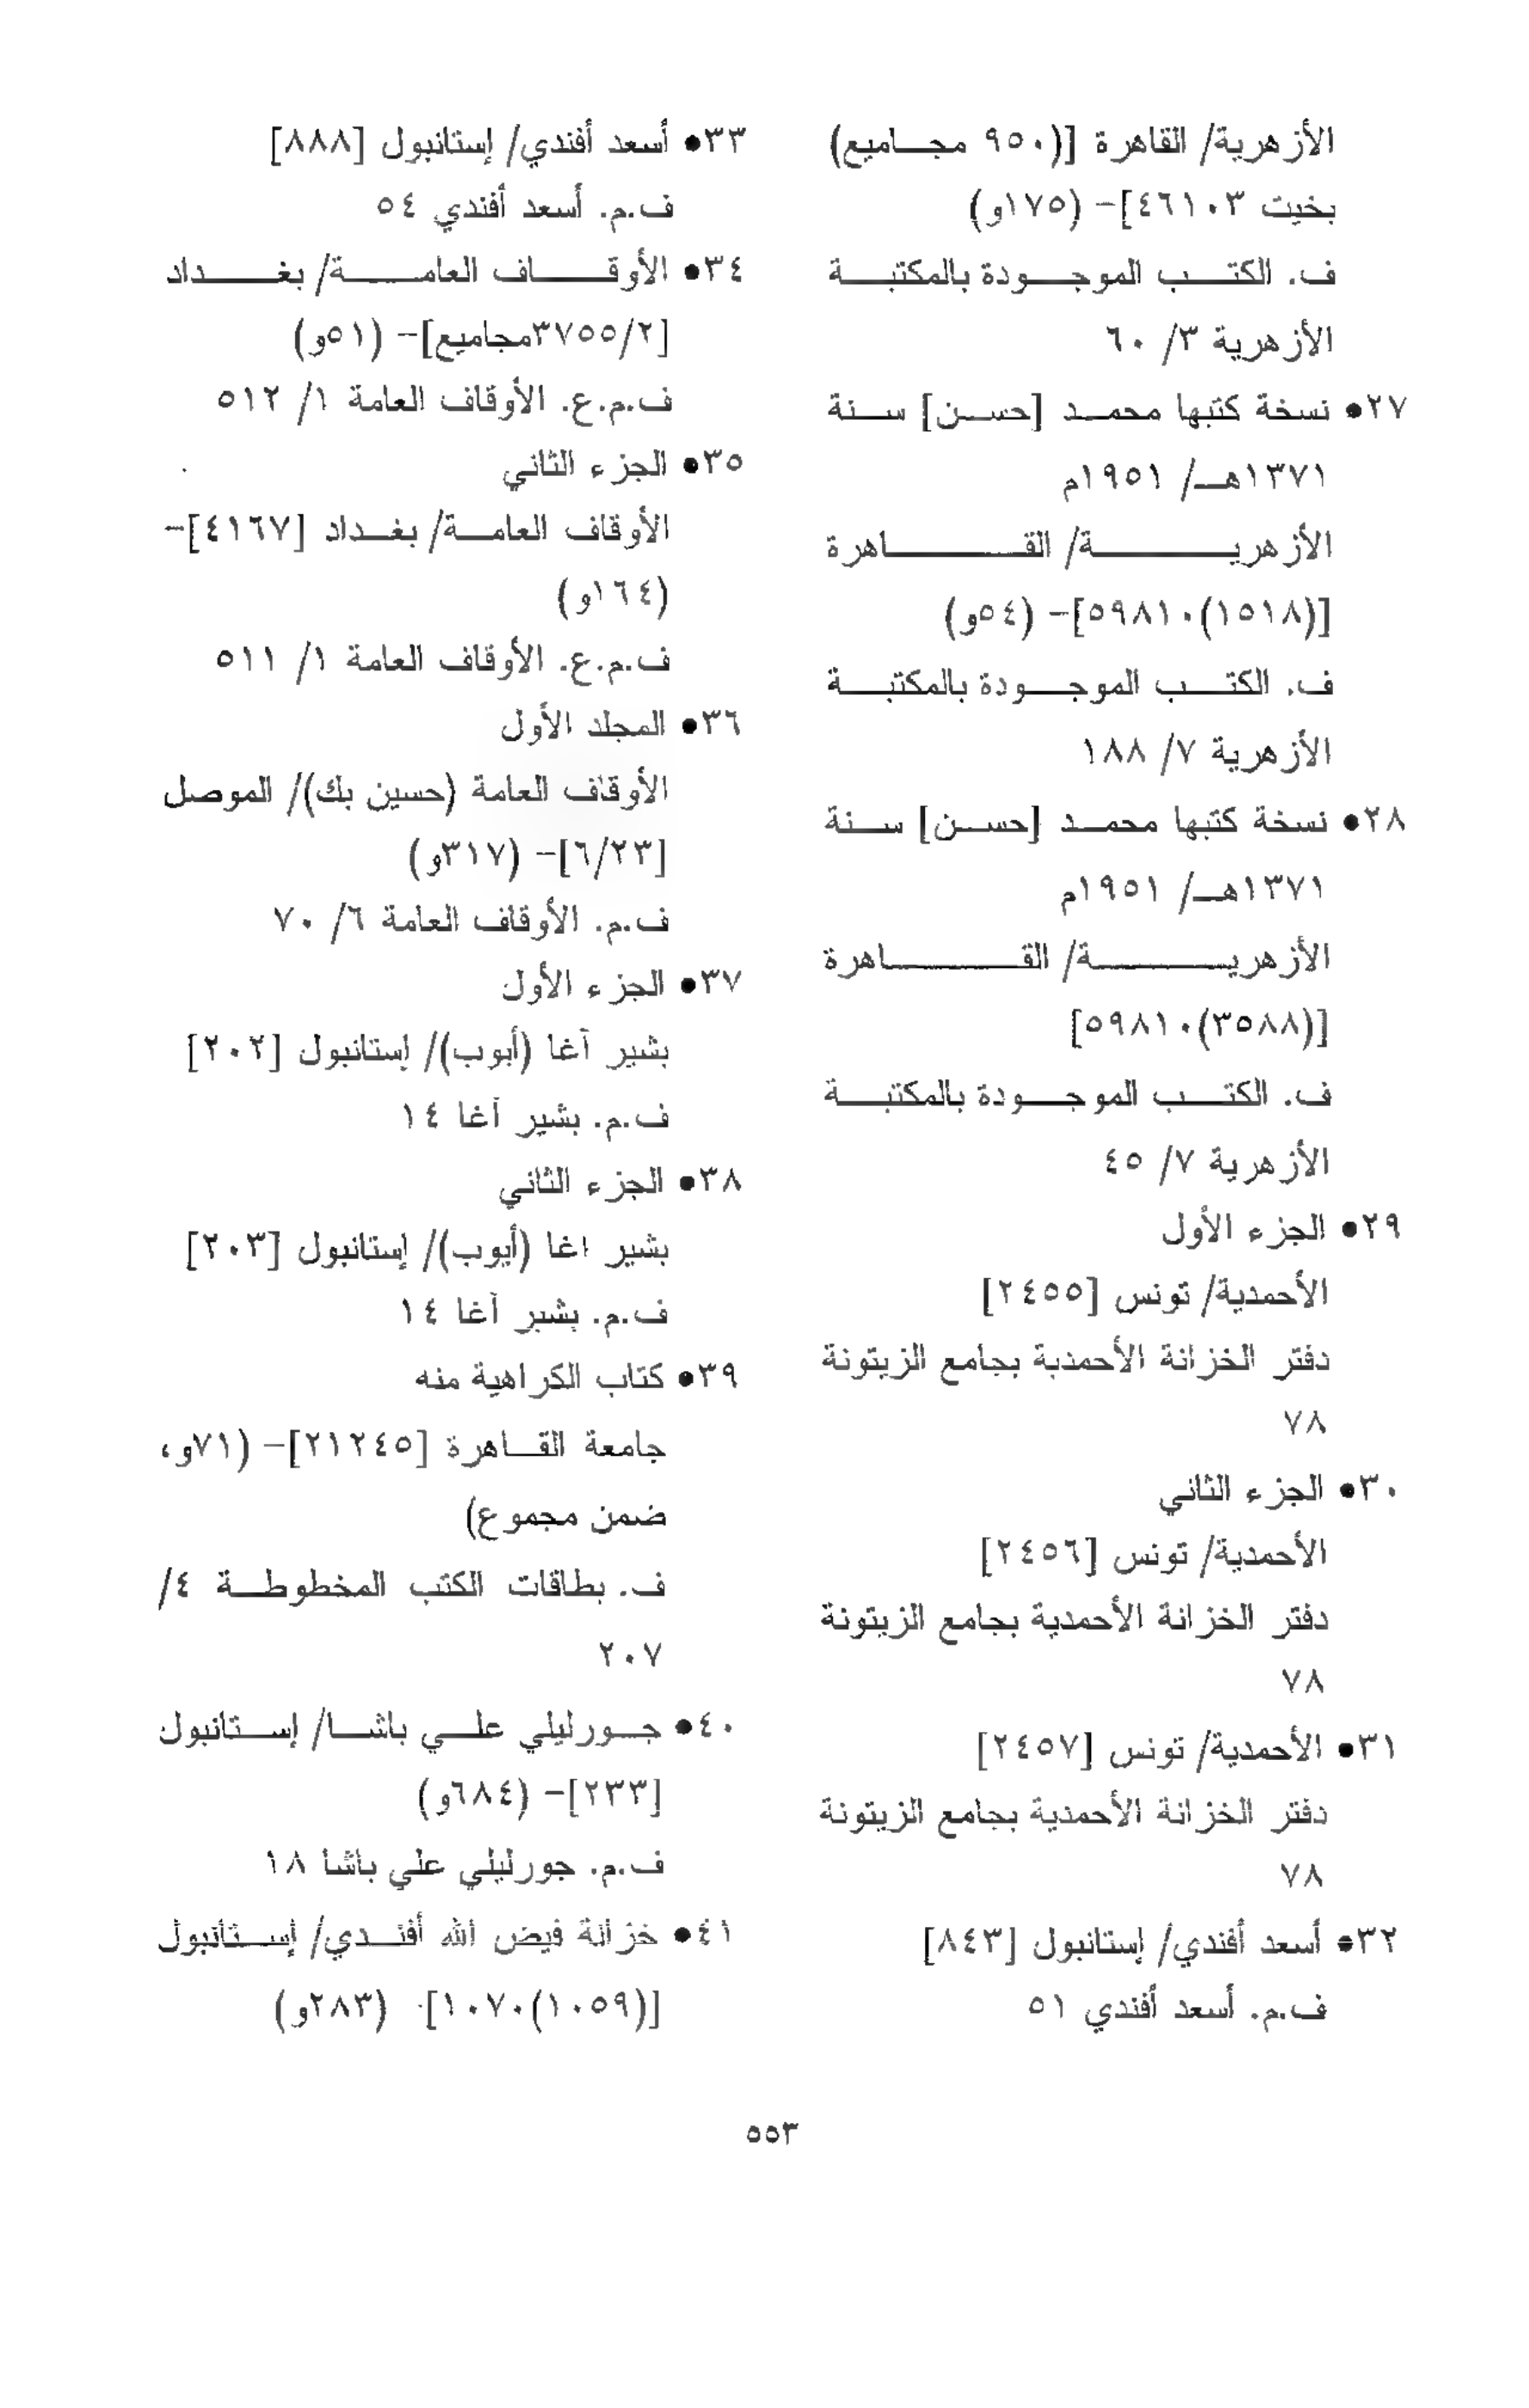 الأزهرية/ القاهرة [(٩٥٠ مجاميع)
بخيت ٤٦١٠٣]- (١٧٥و)
ف. الكتب الموجودة بالمكتبة
الأزهرية ٣/ ٦٠
٢٧• نسخة كتبها محمد [حسن] سنة
١٣٧١هـ/ ١٩٥١م
الأزهرية/ القاهرة
[(١٥١٨)٥٩٨١٠]- (٥٤و)
ف. الكتب الموجودة بالمكتبة
الأزهرية ٧/ ١٨٨
٢٨• نسخة كتبها محمد [حسن] سنة
١٣٧١هـ/ ١٩٥١م
الأزهرية/ القاهرة
[(٣٥٨٨)٥٩٨١٠]
ف. الكتب الموجودة بالمكتبة
الأزهرية ٧/ ٤٥
٢٩• الجزء الأول
الأحمدية/ تونس [٢٤٥٥]
دفتر الخزانة الأحمدية بجامع الزيتونة
٧٨
٣٠• الجزء الثاني
الأحمدية/ تونس [٢٤٥٦]
دفتر الخزانة الأحمدية بجامع الزيتونة
٧٨
٣١• الأحمدية/ تونس [٢٤٥٧]
دفتر الخزانة الأحمدية بجامع الزيتونة
٧٨
٣٢• أسعد أفندي/ إستانبول [٨٤٣]
ف.م. أسعد أفندي ٥١
٣٣• أسعد أفندي/ إستانبول [٨٨٨]
ف.م. أسعد أفندي ٥٤
٣٤• الأوقاف العامة/ بغداد
[٣٧٥٥/٢مجاميع]- (٥١و)
ف.م.ع. الأوقاف العامة ١/ ٥١٢
٣٥• الجزء الثاني
الأوقاف العامة/ بغداد [٤١٦٧]-
(١٦٤و)
ف.م.ع. الأوقاف العامة ١/ ٥١١
٣٦• المجلد الأول
الأوقاف العامة (حسين بك)/ الموصل
[٦/٢٣]- (٣١٧و)
ف.م. الأوقاف العامة ٦/ ٧٠
٣٧• الجزء الأول
بشير آغا (أيوب)/ إستانبول [٢٠٢]
ف.م. بشير آغا ١٤
٣٨• الجزء الثاني
بشير اغا (أيوب)/ إستانبول [٢٠٣]
ف.م. بشير آغا ١٤
٣٩• كتاب الكراهية منه
جامعة القاهرة [٢١٢٤٥]- (٧١و،
ضمن مجموع)
ف. بطاقات الكتب المخطوطة ٤/
٢٠٧
٤٠• جورليلي علي باشا/ إستانبول
[٢٣٣]- (٦٨٤و)
ف.م. جورليلي علي باشا ١٨
٤١• خزانة فيض الله أفندي/ إستانبول
[(١٠٥٩)١٠٧٠] (٢٨٣و)
٥٥٣